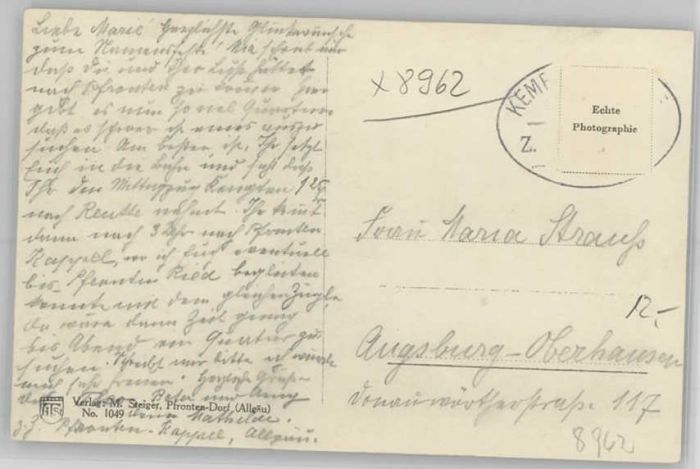 Liebe Marie! Herzlichste Glückwünsche
zum Namensfeste! Wie schreibt mir
daß Du und Ihr Lust hättet
nach Pfronten zu kommen. Hier
gibt es nun so viel Quartiere
daß es schwer ist eines auszu
suchen. Am besten ist, Ihr setzt
Euch in die Bahn und
Ihr den Mittagszug Kempten 1 25
nach Reutte nehmt. Ihr kommt
dann nach 3 Uhr nach Pfronten
Kappel, wo ich Euch eventuell
bis Pfronten Ried begleiten
könnte mit dem gleichen Zug
da wäre dann Zeit genug
bis Abend ein Quartier zu
suchen. Schreibt mir bitte ich würde
mich sehr freuen. Herzliche Grüße
Mathilde.
z. Z. Pfronten-Kappel, Allgäu.
Verlag: M. Steiger, Pfronten-Dorf (Allgäu)
No. 1049
x 8962
KEMP
Z.
Echte
Photographie
Frau Maria Strauß
12.-
Augsburg-Oberhausen
Donauwörtherstraße 117
8962